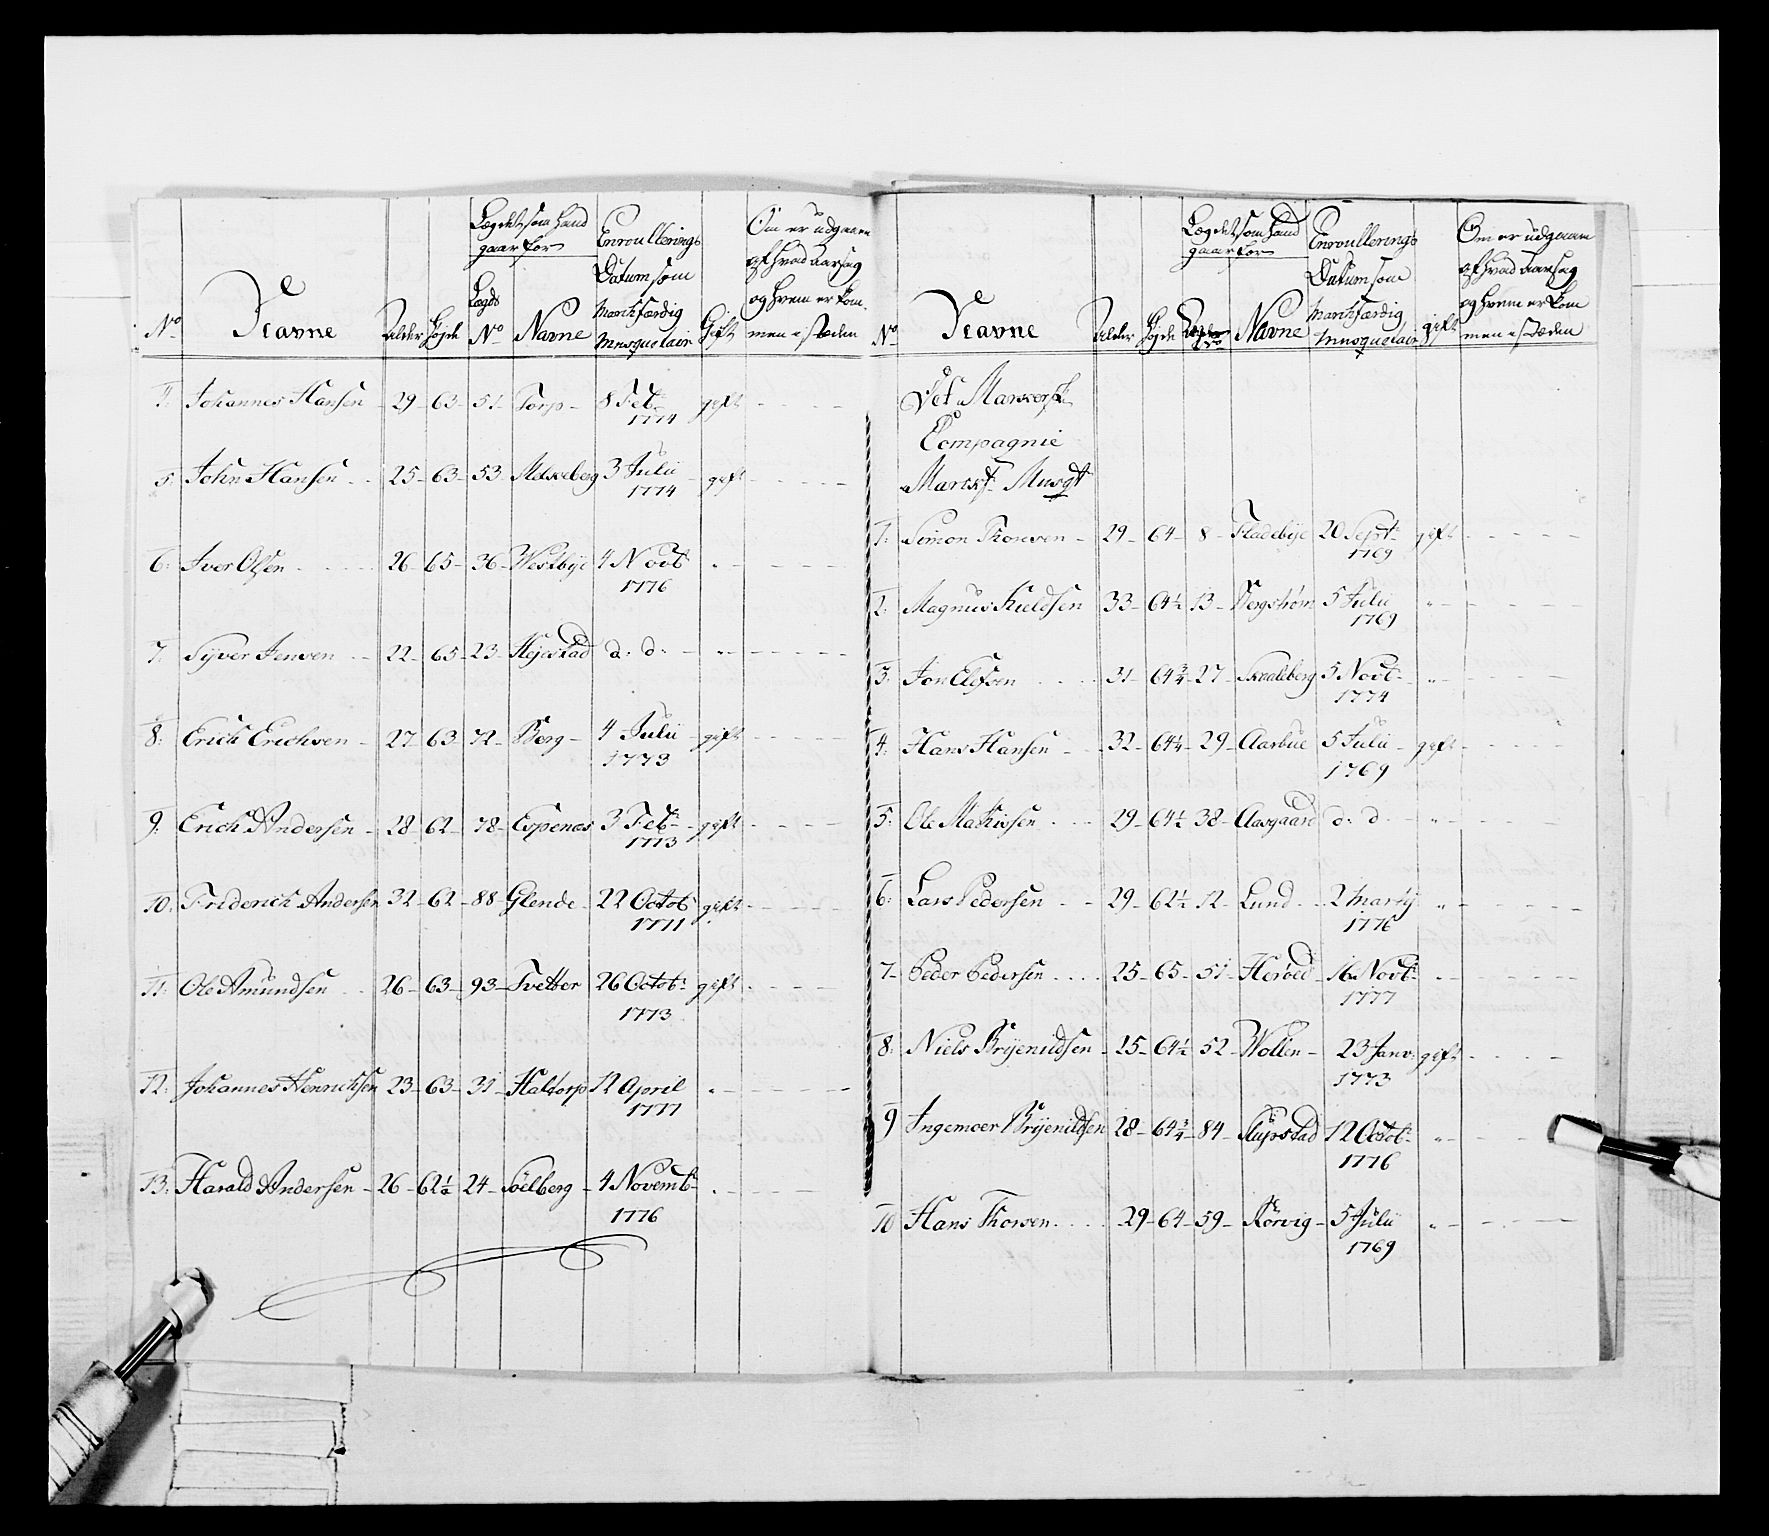 Lægdet som hand
gaar for
Enroullerings
Datum som
Om er udgaaen
af hvad aarsag
og hvem er kom-
No Navne Alder Højde Lægds No Navne Marchfærdig Musquetair Gift men i Stæden
4. Johannes Hansen 29 63 51 Torp 8 Feb: gift
1774
5. John Hansen 25 63 53 3 Julii gift
1774
6. Iver Olsen 26 65 36 Westbye 4 Novb:
1776
7. Syver Jensen 22 65 23 Hejestad d: d:
8. Erich Erichsen 27 63 72 Berg 4 Julii gift
1773
9. Erich Andersen 28 62 78 Espenes 3 Feb: gift
1773
10. Friderich Andersen 32 62 88 Glende 22 Octob: gift
1771
11. Ole Amundsen 26 63 93 Tvetter 26 Octob: gift
1773
12. Johannes Henrichsen 23 63 31 Haltorp 12 April
1777
13. Harald Andersen 26 62½ 24 Söelberg 4 Novemb:
1776
Lægdet som hand
gaar for
Enroullerings
Datum som
Om er udgaaen
af hvad aarsag
og hvem er kom
No Navne Alder Højde Navne Marchfærdig Musquetair gift men i Stæden
Det
Compagnie
Marchf. Musqt
1. Simon Thorsen 29 64 8 Fladebye 20 Sept: gift
1769
2. Magnus Kieldsen 33 64½ 13 Bergstrøm 5 Julii
1769
3. Jon Elefsen 31 64¾ 27 Skaalberg 5 Novb:
1774
4. Hans Hansen 32 64¼ 29 Aarbue 5 Julii gift
1769
5. Ole Mathisen 29 64½ 38 Aasgaard d: d:
6. Lars Pedersen 29 62½ 12 Lund 2 Martij
1776
7. Peder Pedersen 25 65 51 16 Novb:
1777
8. Niels Bryenildsen 25 64½ 52 Wollen 23 Janv: gift
1773
9 Ingemoer Bryenildsen 28 64¾ 84 12 Octob:
1776
10 Hans Thorsen 29 64 59 Körvig 5 Julii
1769